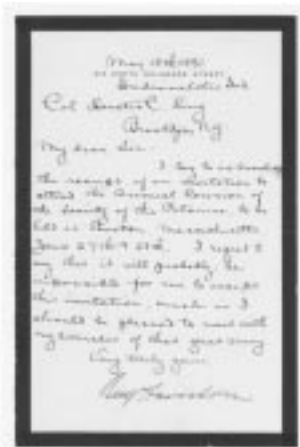 May
Indianapolis Ind
Col Horatio C. King
Brooklyn NY
My dear Sir.
I beg to acknowledge
the receipt of an invitation to
attend the Annual Reunion of
the Society of the Potomac to be
held at Boston Massachusetts
June 27th I regret to
say that it will probably be
impossible for me to accept
the invitation much as I
should be pleased to meet with
my comrades of that great army
Very truly yours
Benj Harrison